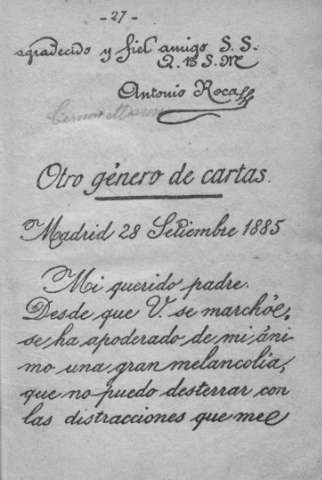 - 27 -
agradecido y fiel amigo S. S.
Q. B. S. M.
Antonio Roca
Otro género de cartas.
Madrid 28 Setiembre 1885
Mi querido padre.
Desde que V. se marchóe,
se ha apoderado de mi áni
mo una gran melancolía,
que no puedo desterrar con
las distracciones que me